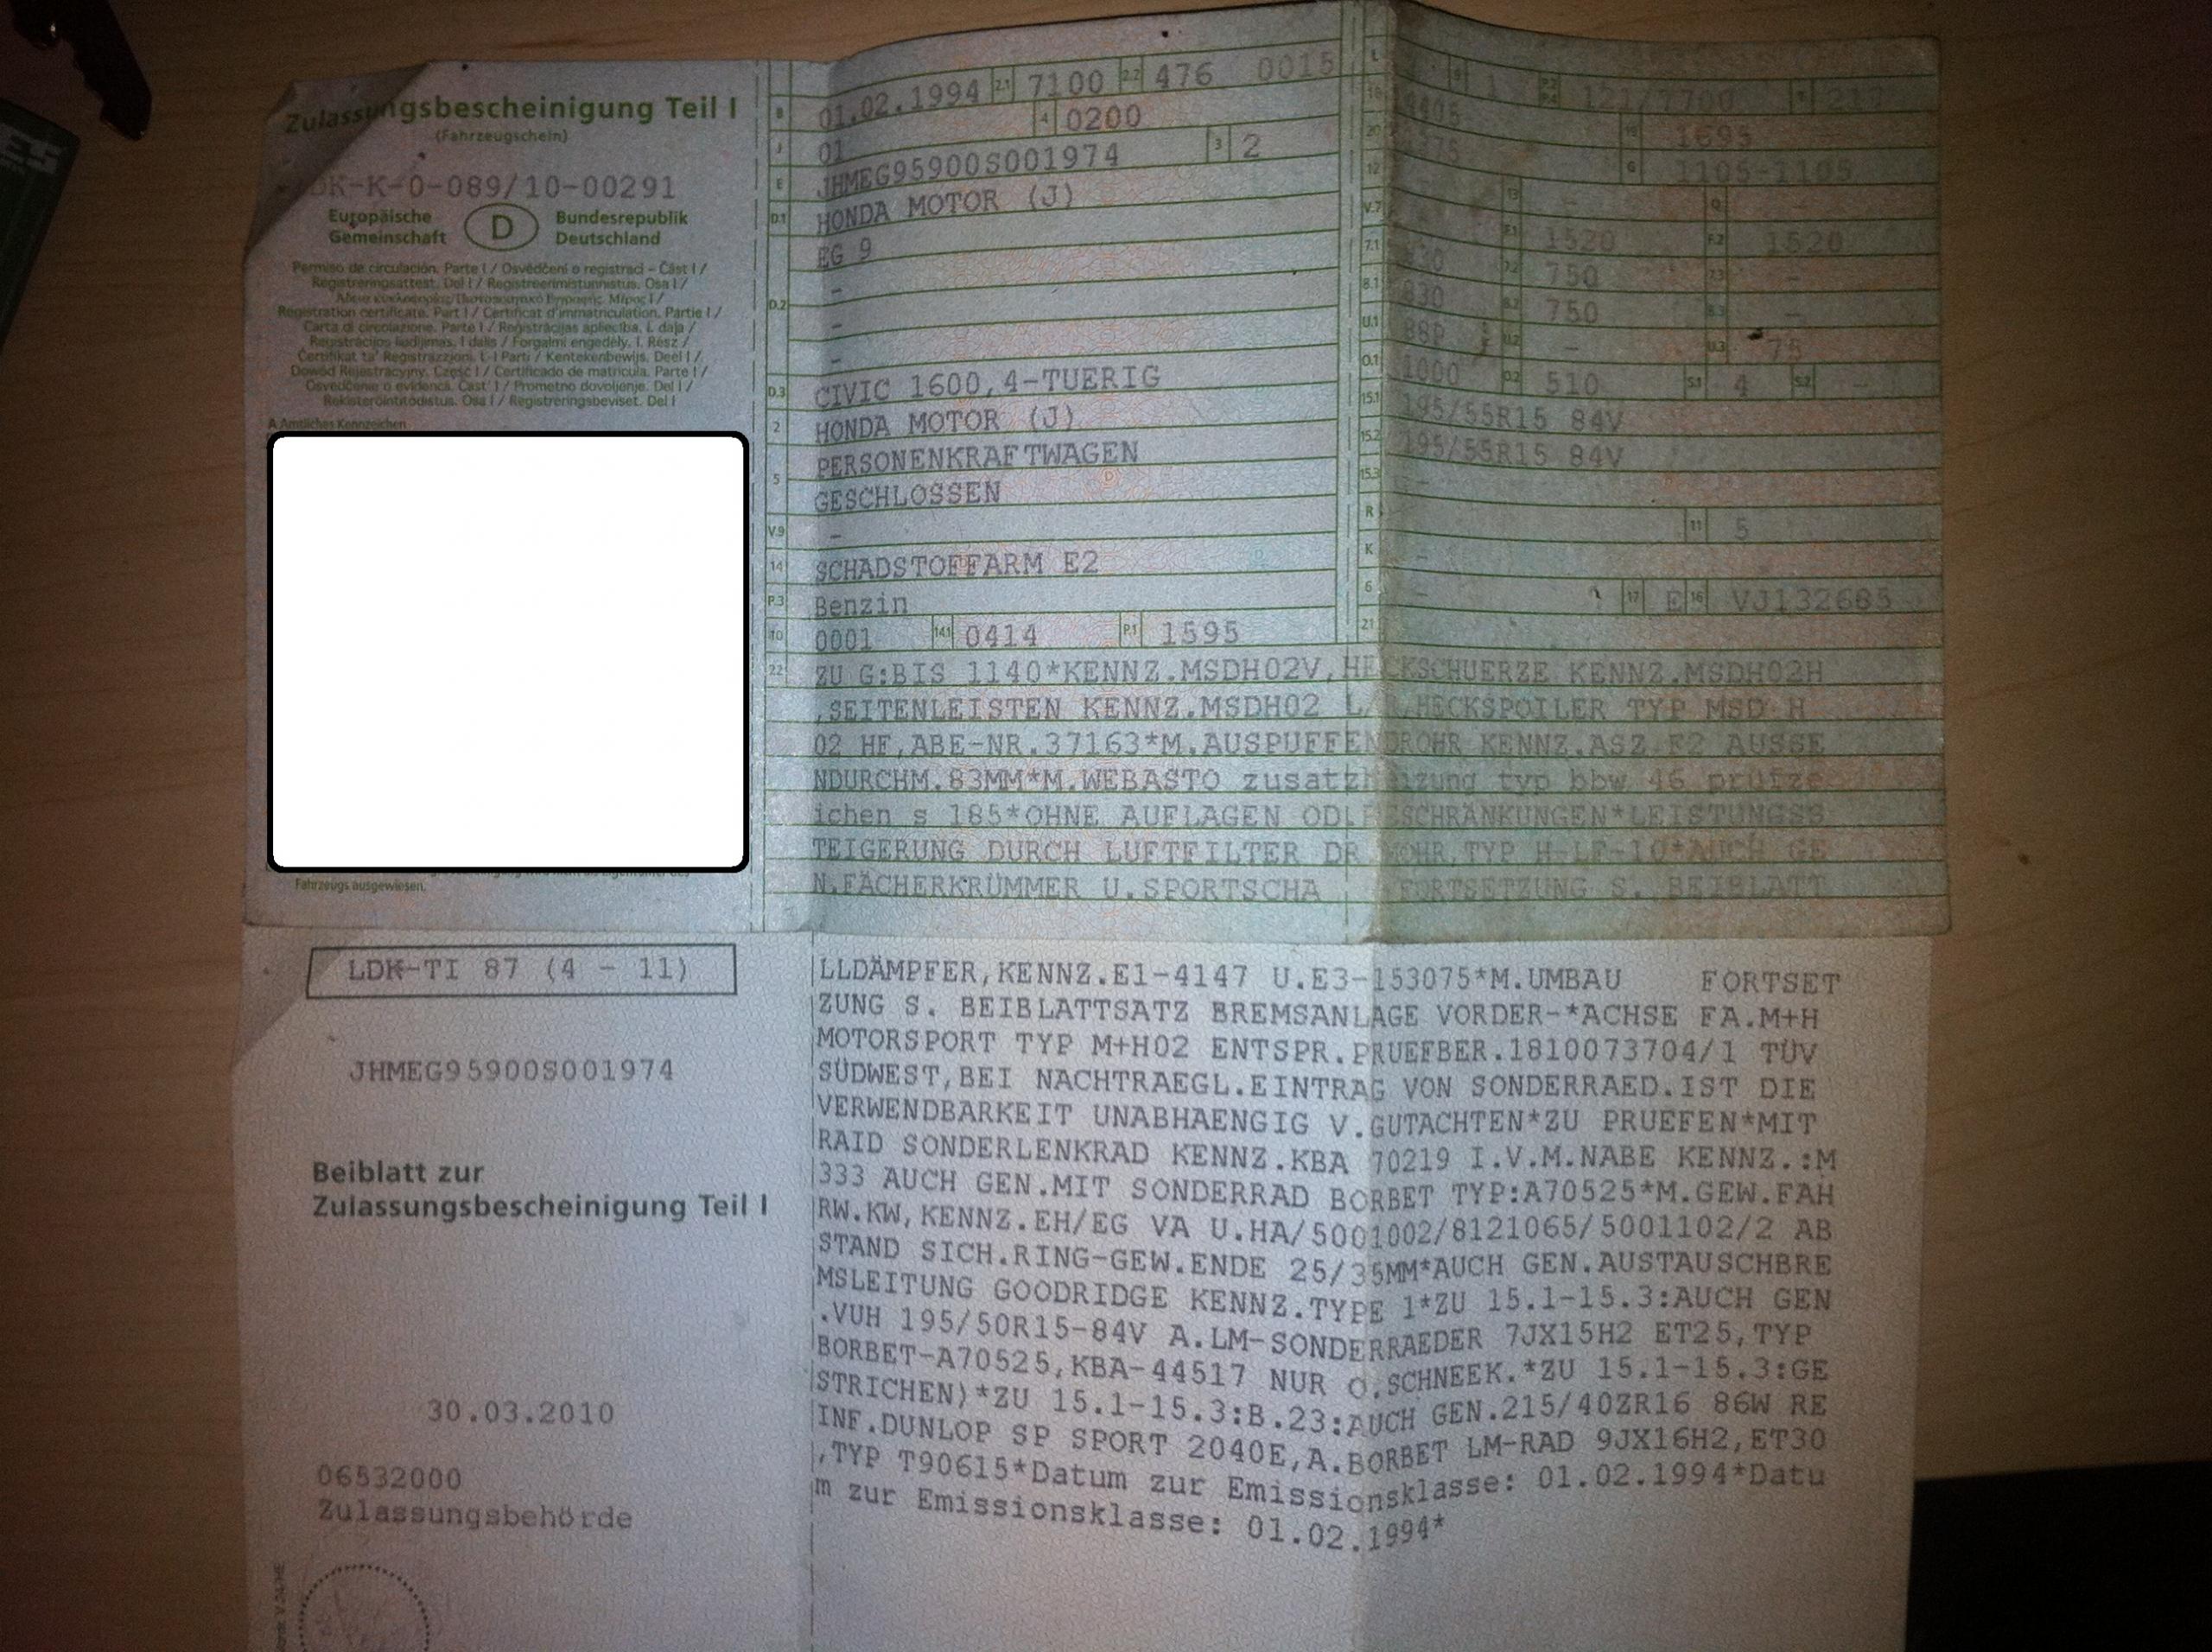 Zulassungsbescheinigung Teil I
(Fahrzeugschein)
DK-K-0-089/10-00291
Europäische Gemeinschaft D Bundesrepublik Deutschland
Permiso de circulación. Parte I / Osvědčení o registraci – Část I /
Registreringsattest. Del I / Registreerimistunnistus. Osa I /
Registration certificate. Part I / Certificat d'immatriculation. Partie I /
Carta di circolazione. Parte I / Reģistrācijas apliecība. I. daļa /
Registracijos liudijimas. I dalis / Forgalmi engedély. I. Rész /
Ċertifikat ta' Reġistrazzjoni. L-I Parti / Kentekenbewijs. Deel I /
Dowód Rejestracyjny. Część I / Certificado de matrícula. Parte I /
Osvedčenie o evidencii. Časť I / Prometno dovoljenje. Del I /
Rekisteröintitodistus. Osa I / Registreringsbeviset. Del I
A Amtliches Kennzeichen
Fahrzeugs ausgewiesen.
B 01.02.1994 2.1 7100 2.2 476 0015
J 01 4 0200
E JHMEG95900S001974 3 2
D.1 HONDA MOTOR (J)
EG 9
–
D.2 –
–
D.3 CIVIC 1600,4-TUERIG
2 HONDA MOTOR (J)
5 PERSONENKRAFTWAGEN
GESCHLOSSEN
V.9 –
14 SCHADSTOFFARM E2
P.3 Benzin
10 0001 14.1 0414 P.1 1595
L 9 1 P.2 P.4 121/7700 T 217
18 4405 19 1695
20 1375 G 1105-1105
12 13 – Q –
V.7 F.1 1520 F.2 1520
7.1 830 7.2 750 7.3 –
8.1 830 8.2 750 8.3 –
U.1 88P U.2 – U.3 75
O.1 1000 O.2 510 S.1 4 S.2 –
15.1 195/55R15 84V
15.2 195/55R15 84V
15.3 –
R 11 5
K –
6 – 17 E 16 VJ132685
21
22 ZU G:BIS 1140*KENNZ.MSDH02V,HECKSCHUERZE KENNZ.MSDH02H
,SEITENLEISTEN KENNZ.MSDH02 L/ ,HECKSPOILER TYP MSD H
02 HF,ABE-NR.37163*M.AUSPUFFENDROHR KENNZ.ASZ F2 AUSSE
NDURCHM.83MM*M.WEBASTO zusatzheizung typ bbw 46 prüfze
ichen s 185*OHNE AUFLAGEN ODER BESCHRÄNKUNGEN*LEISTUNGSS
TEIGERUNG DURCH LUFTFILTER DR. MOHR,TYP H-LF-10*AUCH GE
N.FÄCHERKRÜMMER U.SPORTSCHA FORTSETZUNG S. BEIBLATT
LDK-TI 87 (4 - 11)
JHMEG95900S001974
Beiblatt zur
Zulassungsbescheinigung Teil I
30.03.2010
06532000
Zulassungsbehörde
LLDÄMPFER,KENNZ.E1-4147 U.E3-153075*M.UMBAU FORTSET
ZUNG S. BEIBLATTSATZ BREMSANLAGE VORDER-*ACHSE FA.M+H
MOTORSPORT TYP M+H02 ENTSPR.PRUEFBER.1810073704/1 TÜV
SÜDWEST,BEI NACHTRAEGL.EINTRAG VON SONDERRAED.IST DIE
VERWENDBARKEIT UNABHAENGIG V.GUTACHTEN*ZU PRUEFEN*MIT
RAID SONDERLENKRAD KENNZ.KBA 70219 I.V.M.NABE KENNZ.:M
333 AUCH GEN.MIT SONDERRAD BORBET TYP:A70525*M.GEW.FAH
RW.KW,KENNZ.EH/EG VA U.HA/5001002/8121065/5001102/2 AB
STAND SICH.RING-GEW.ENDE 25/35MM*AUCH GEN.AUSTAUSCHBRE
MSLEITUNG GOODRIDGE KENNZ.TYPE 1*ZU 15.1-15.3:AUCH GEN
.VUH 195/50R15-84V A.LM-SONDERRAEDER 7JX15H2 ET25,TYP
BORBET-A70525,KBA-44517 NUR O.SCHNEEK.*ZU 15.1-15.3:GE
STRICHEN)*ZU 15.1-15.3:B.23:AUCH GEN.215/40ZR16 86W RE
INF.DUNLOP SP SPORT 2040E,A.BORBET LM-RAD 9JX16H2,ET30
,TYP T90615*Datum zur Emissionsklasse: 01.02.1994*Datu
m zur Emissionsklasse: 01.02.1994*